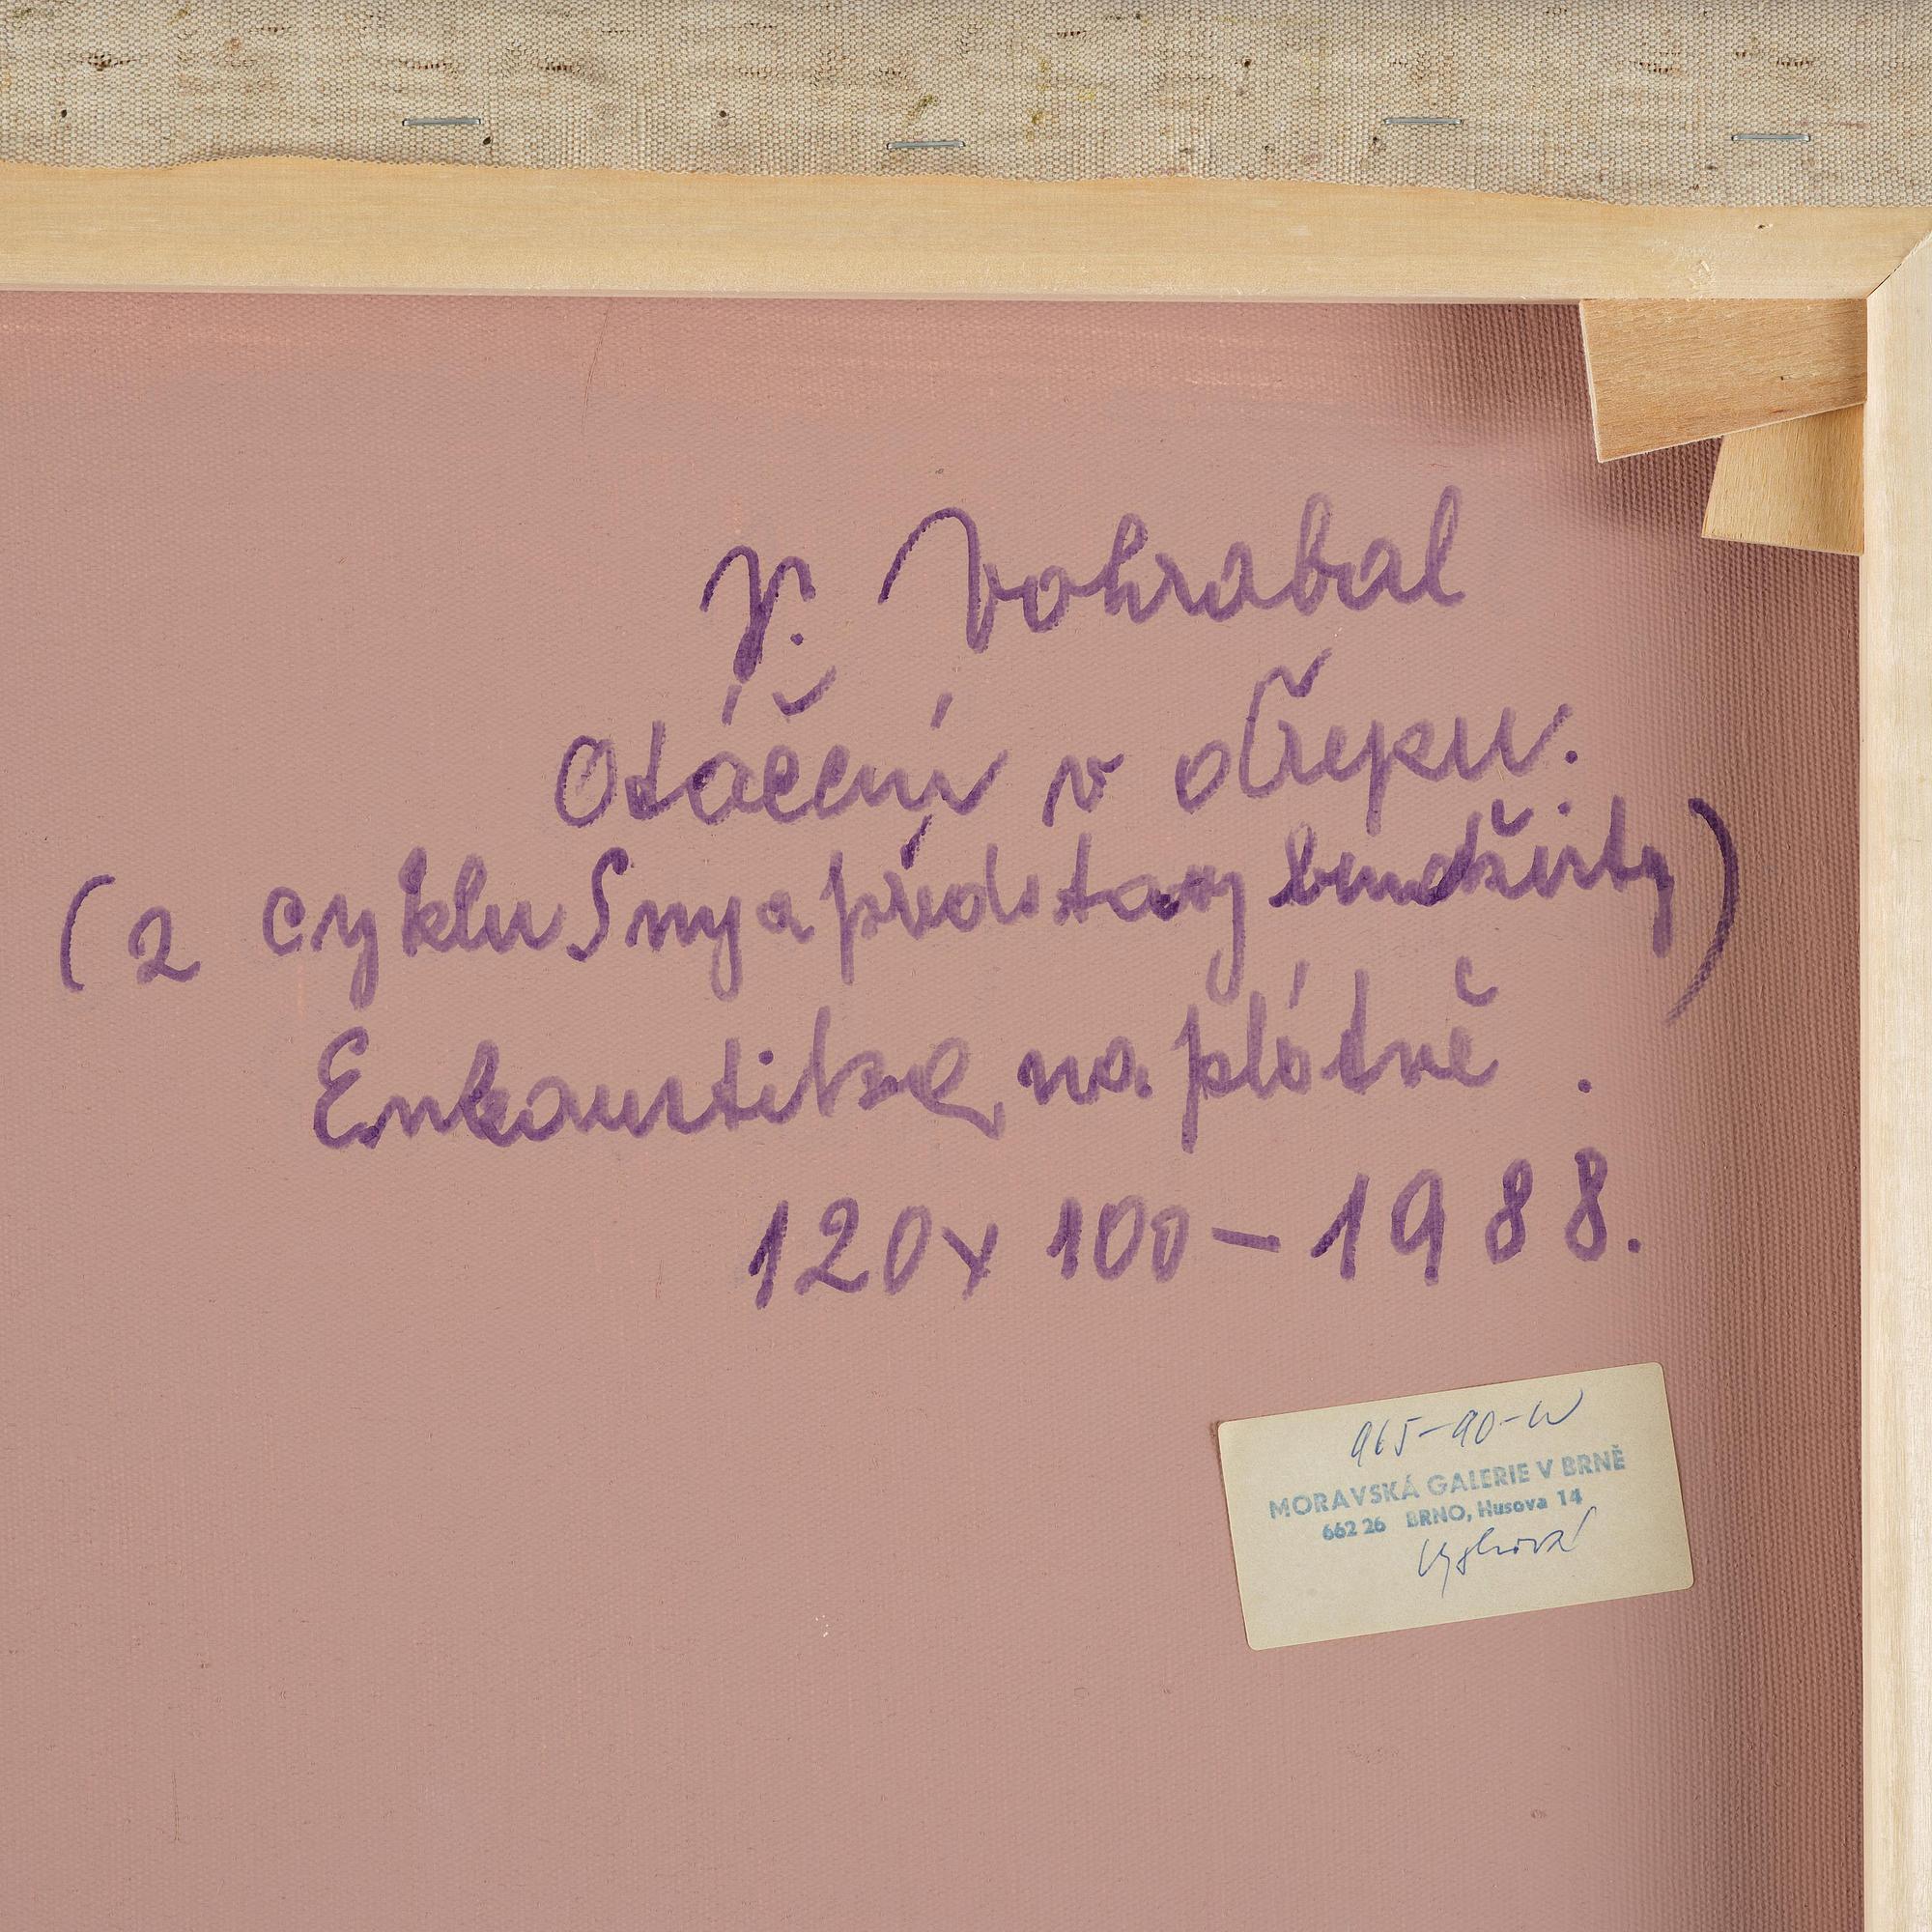 V. Vohrabal
Otáčení v dřepu.
(z cyklu Sny a představy bendžisty)
Enkaustika, na plótně.
120x 100 – 1988.
965-90-W
MORAVSKÁ GALERIE V BRNĚ
662 26 BRNO, Husova 14